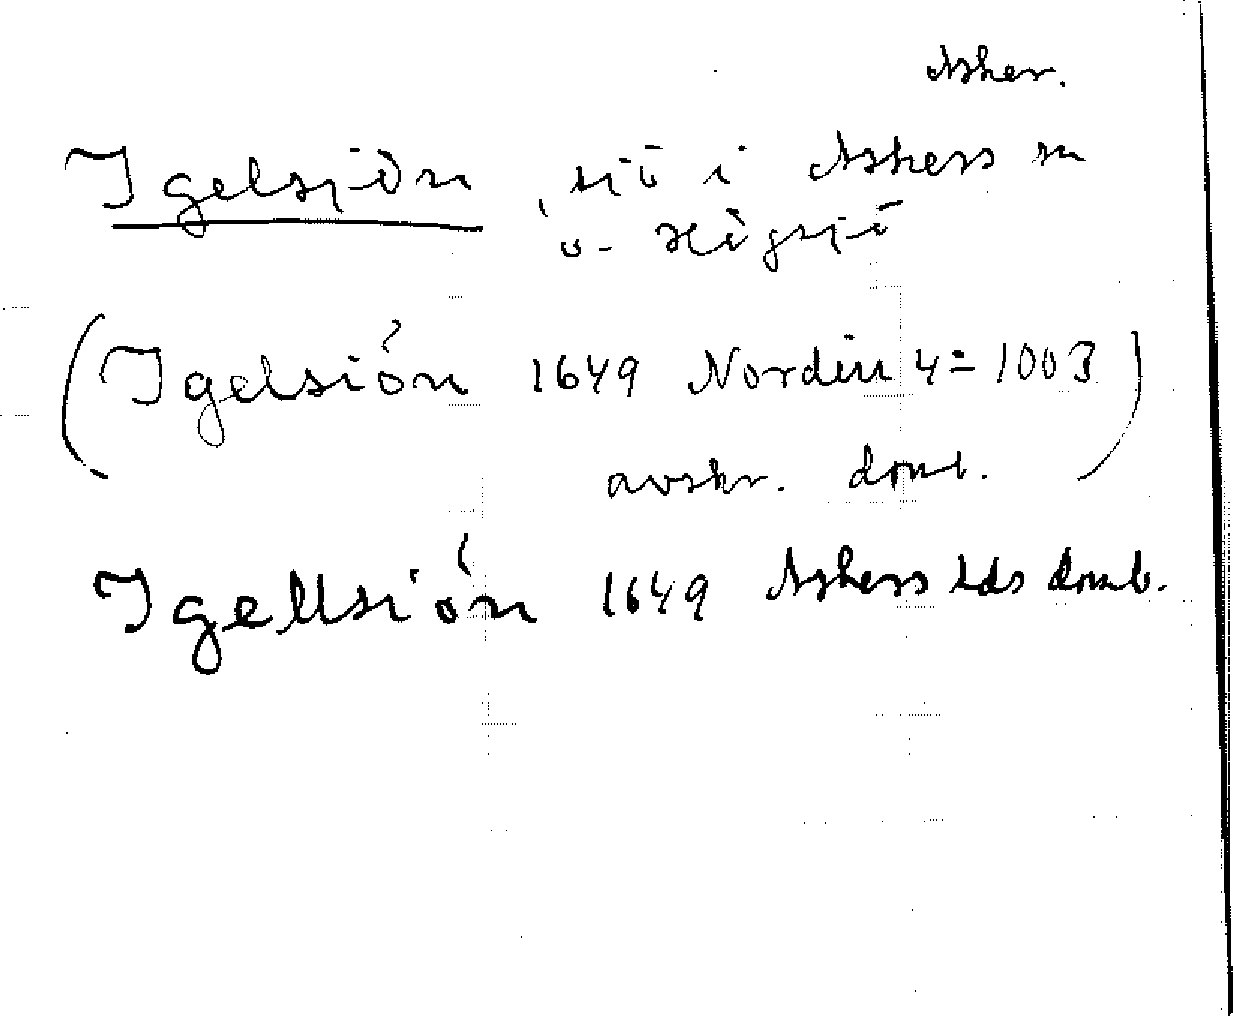 Asker.
Igelsjön, sjö i Askers sn
o. Högsjö
(Igelsión 1649 Nordin 4:o 1003
avskr. domb.)
Igellsión 1649 Askers hds domb.